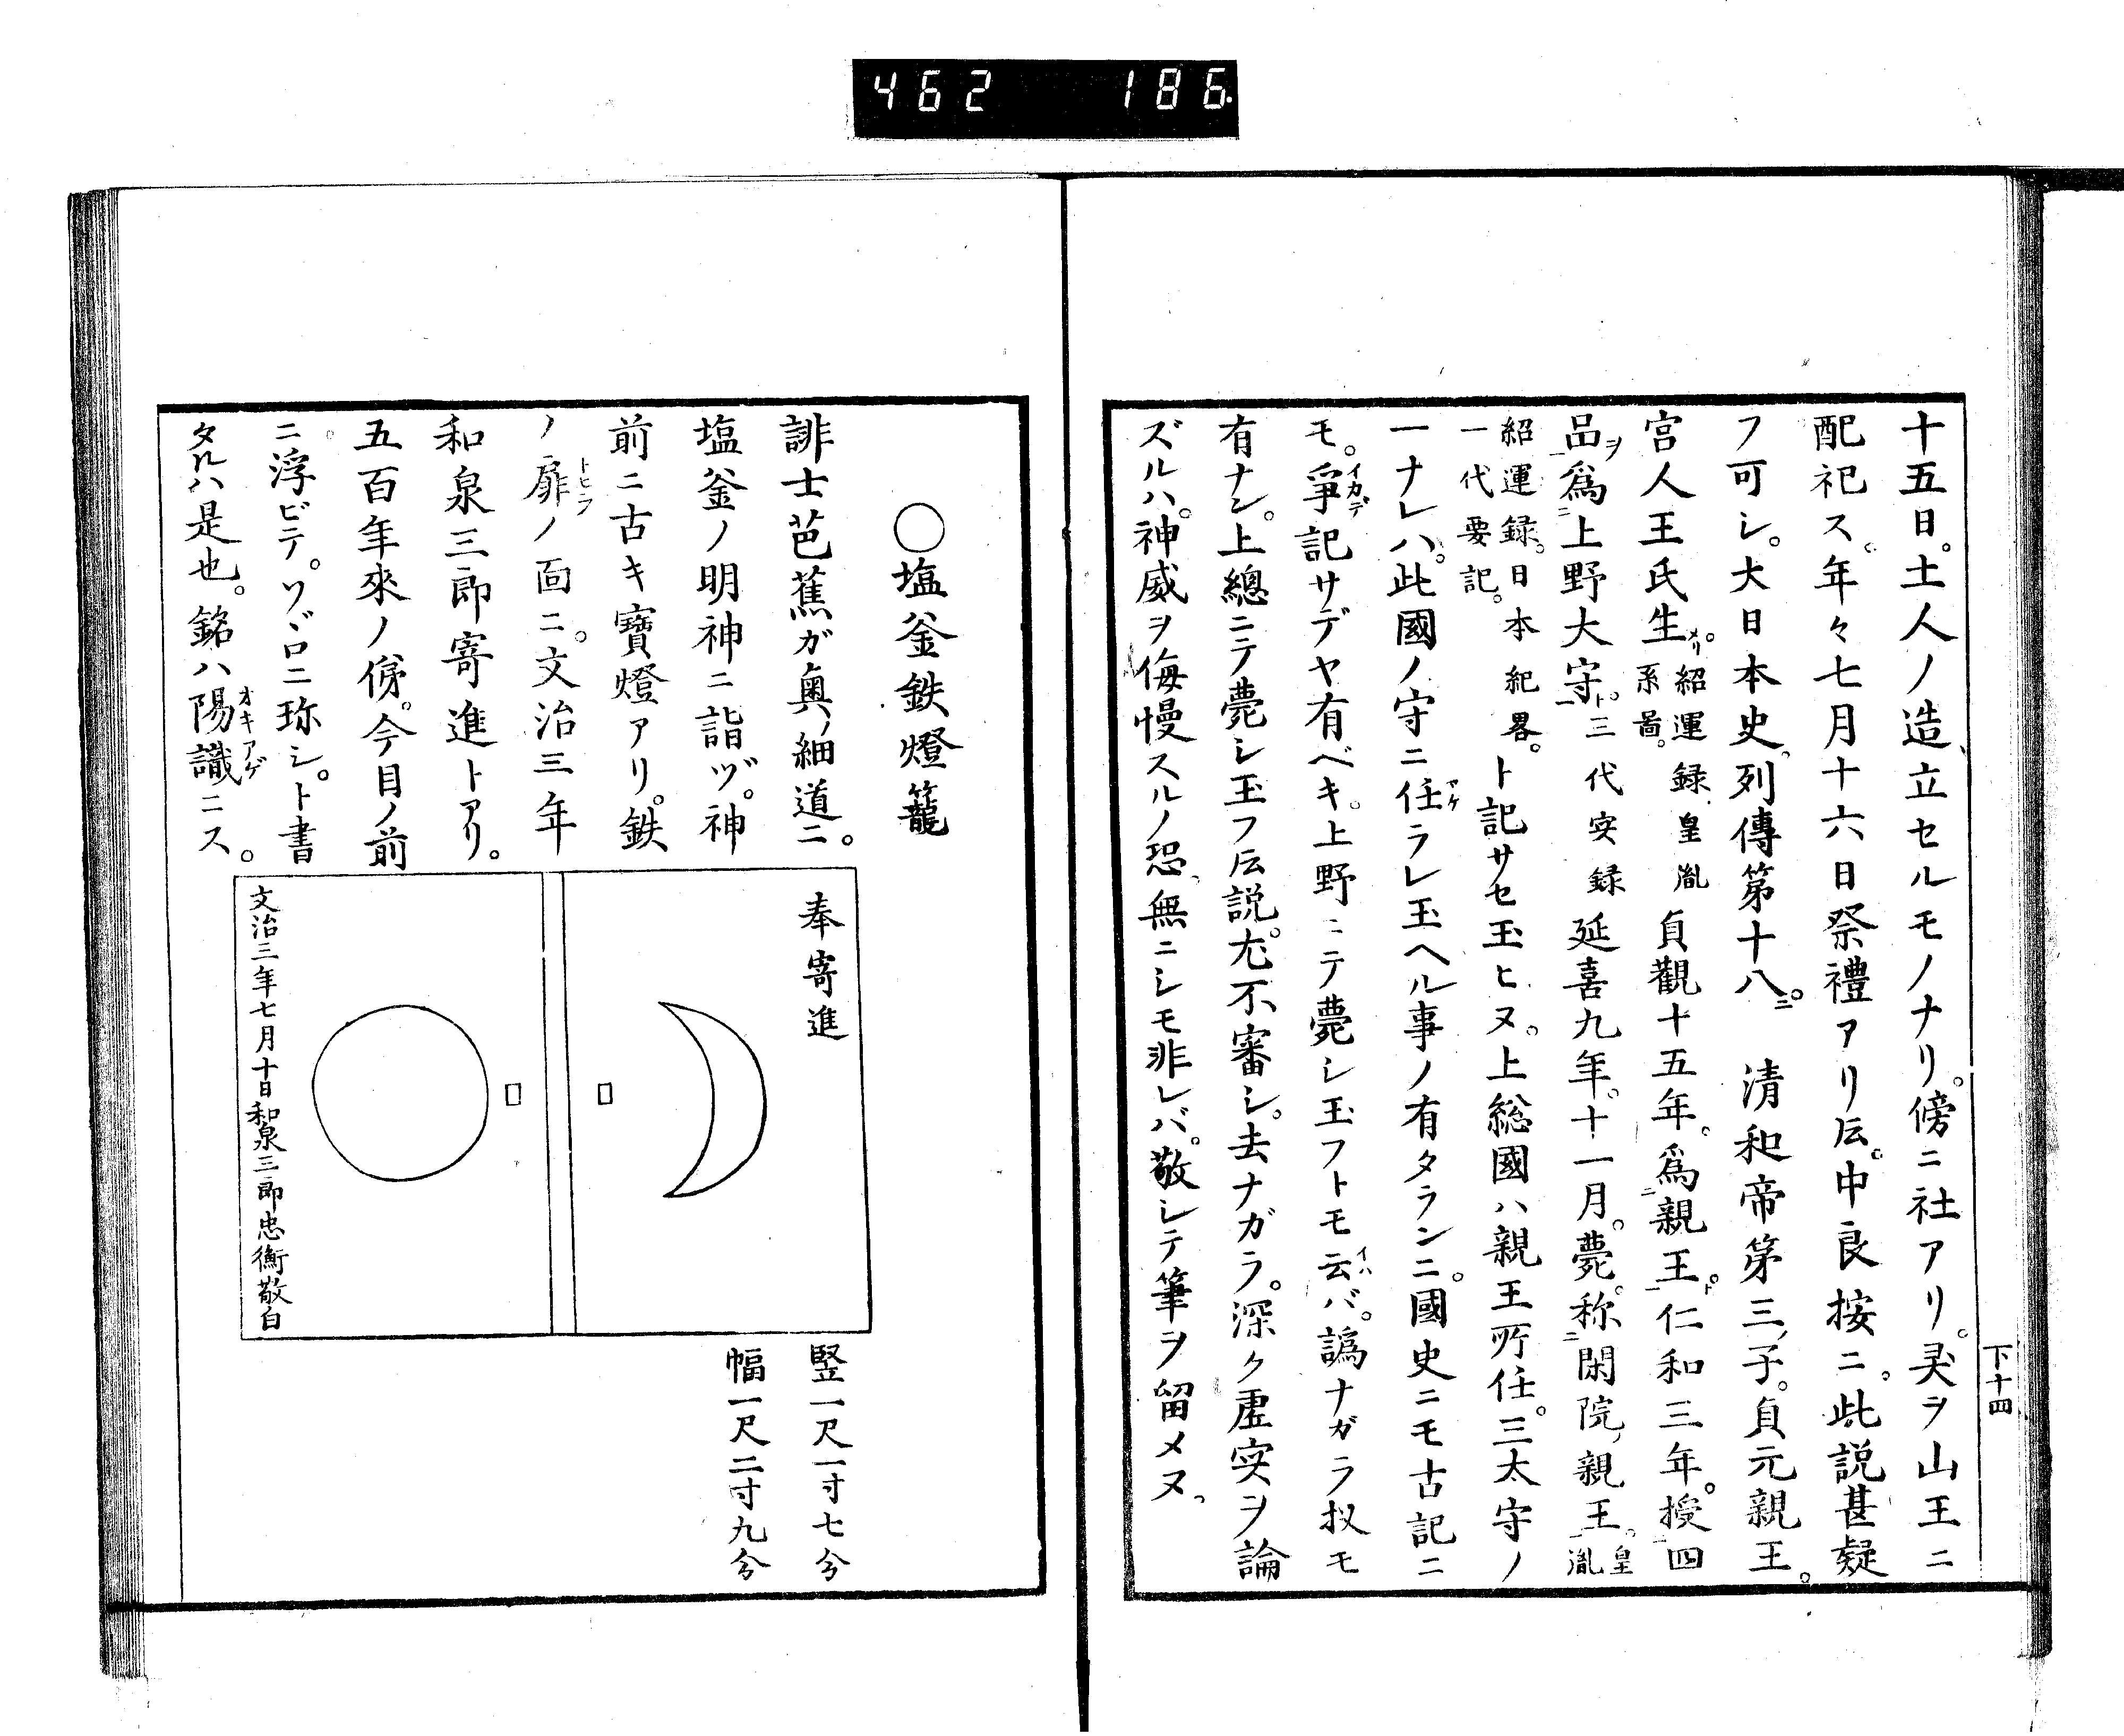 462 186
下十四
十五日。土人ノ造立セルモノナリ。傍ニ社アリ。灵ヲ山王ニ
配祀ス。年々七月十六日祭禮アリ𪜈。中良按ニ。此説甚疑
フ可シ。大日本史、列傳第十八ニ。 清和帝第三ノ子。貞元親王。
宮人王氏生メリ。紹運録、皇胤系圖。貞觀十五年。爲親王ト。仁和三年。授四
品ヲ爲上野大守ト。三代実録 延喜九年。十一月。薨。称閑院ノ親王。皇胤
紹運録。日本紀畧。一代要記。ト記サセ玉ヒヌ。上総國ハ親王所任。三太守ノ
一ナレハ。此國ノ守ニ任ラレ玉ヘル事ノ有タランニ。國史ニモ古記ニ
モ。爭イカデ記サデヤ有ベキ。上野ニテ薨シ玉フトモ云イハバ。譌ナガラ扠モ
有ナン。上總ニテ薨シ玉フ𪜈説。尤不審シ。去ナガラ。深ク虚実ヲ論
ズルハ。神威ヲ侮慢スルノ恐、無ニシモ非レバ。敬シテ筆ヲ留メヌ。
〇塩釜鉄燈籠
誹士芭蕉ガ奥ノ細道ニ。
塩釜ノ明神ニ詣ヅ。神
前ニ古キ寶燈アリ。鉄
ノ扉トヒラノ面ニ。文治三年
和泉三郎寄進トアリ。
五百年來ノ俤。今目ノ前
ニ浮ビテ。ソヾロニ珎シ。ト書
タルハ是也。銘ハ陽識オキアゲニス。
奉寄進
文治三年七月十日和泉三郎忠衡敬白
竪一尺一寸七分
幅一尺二寸九分